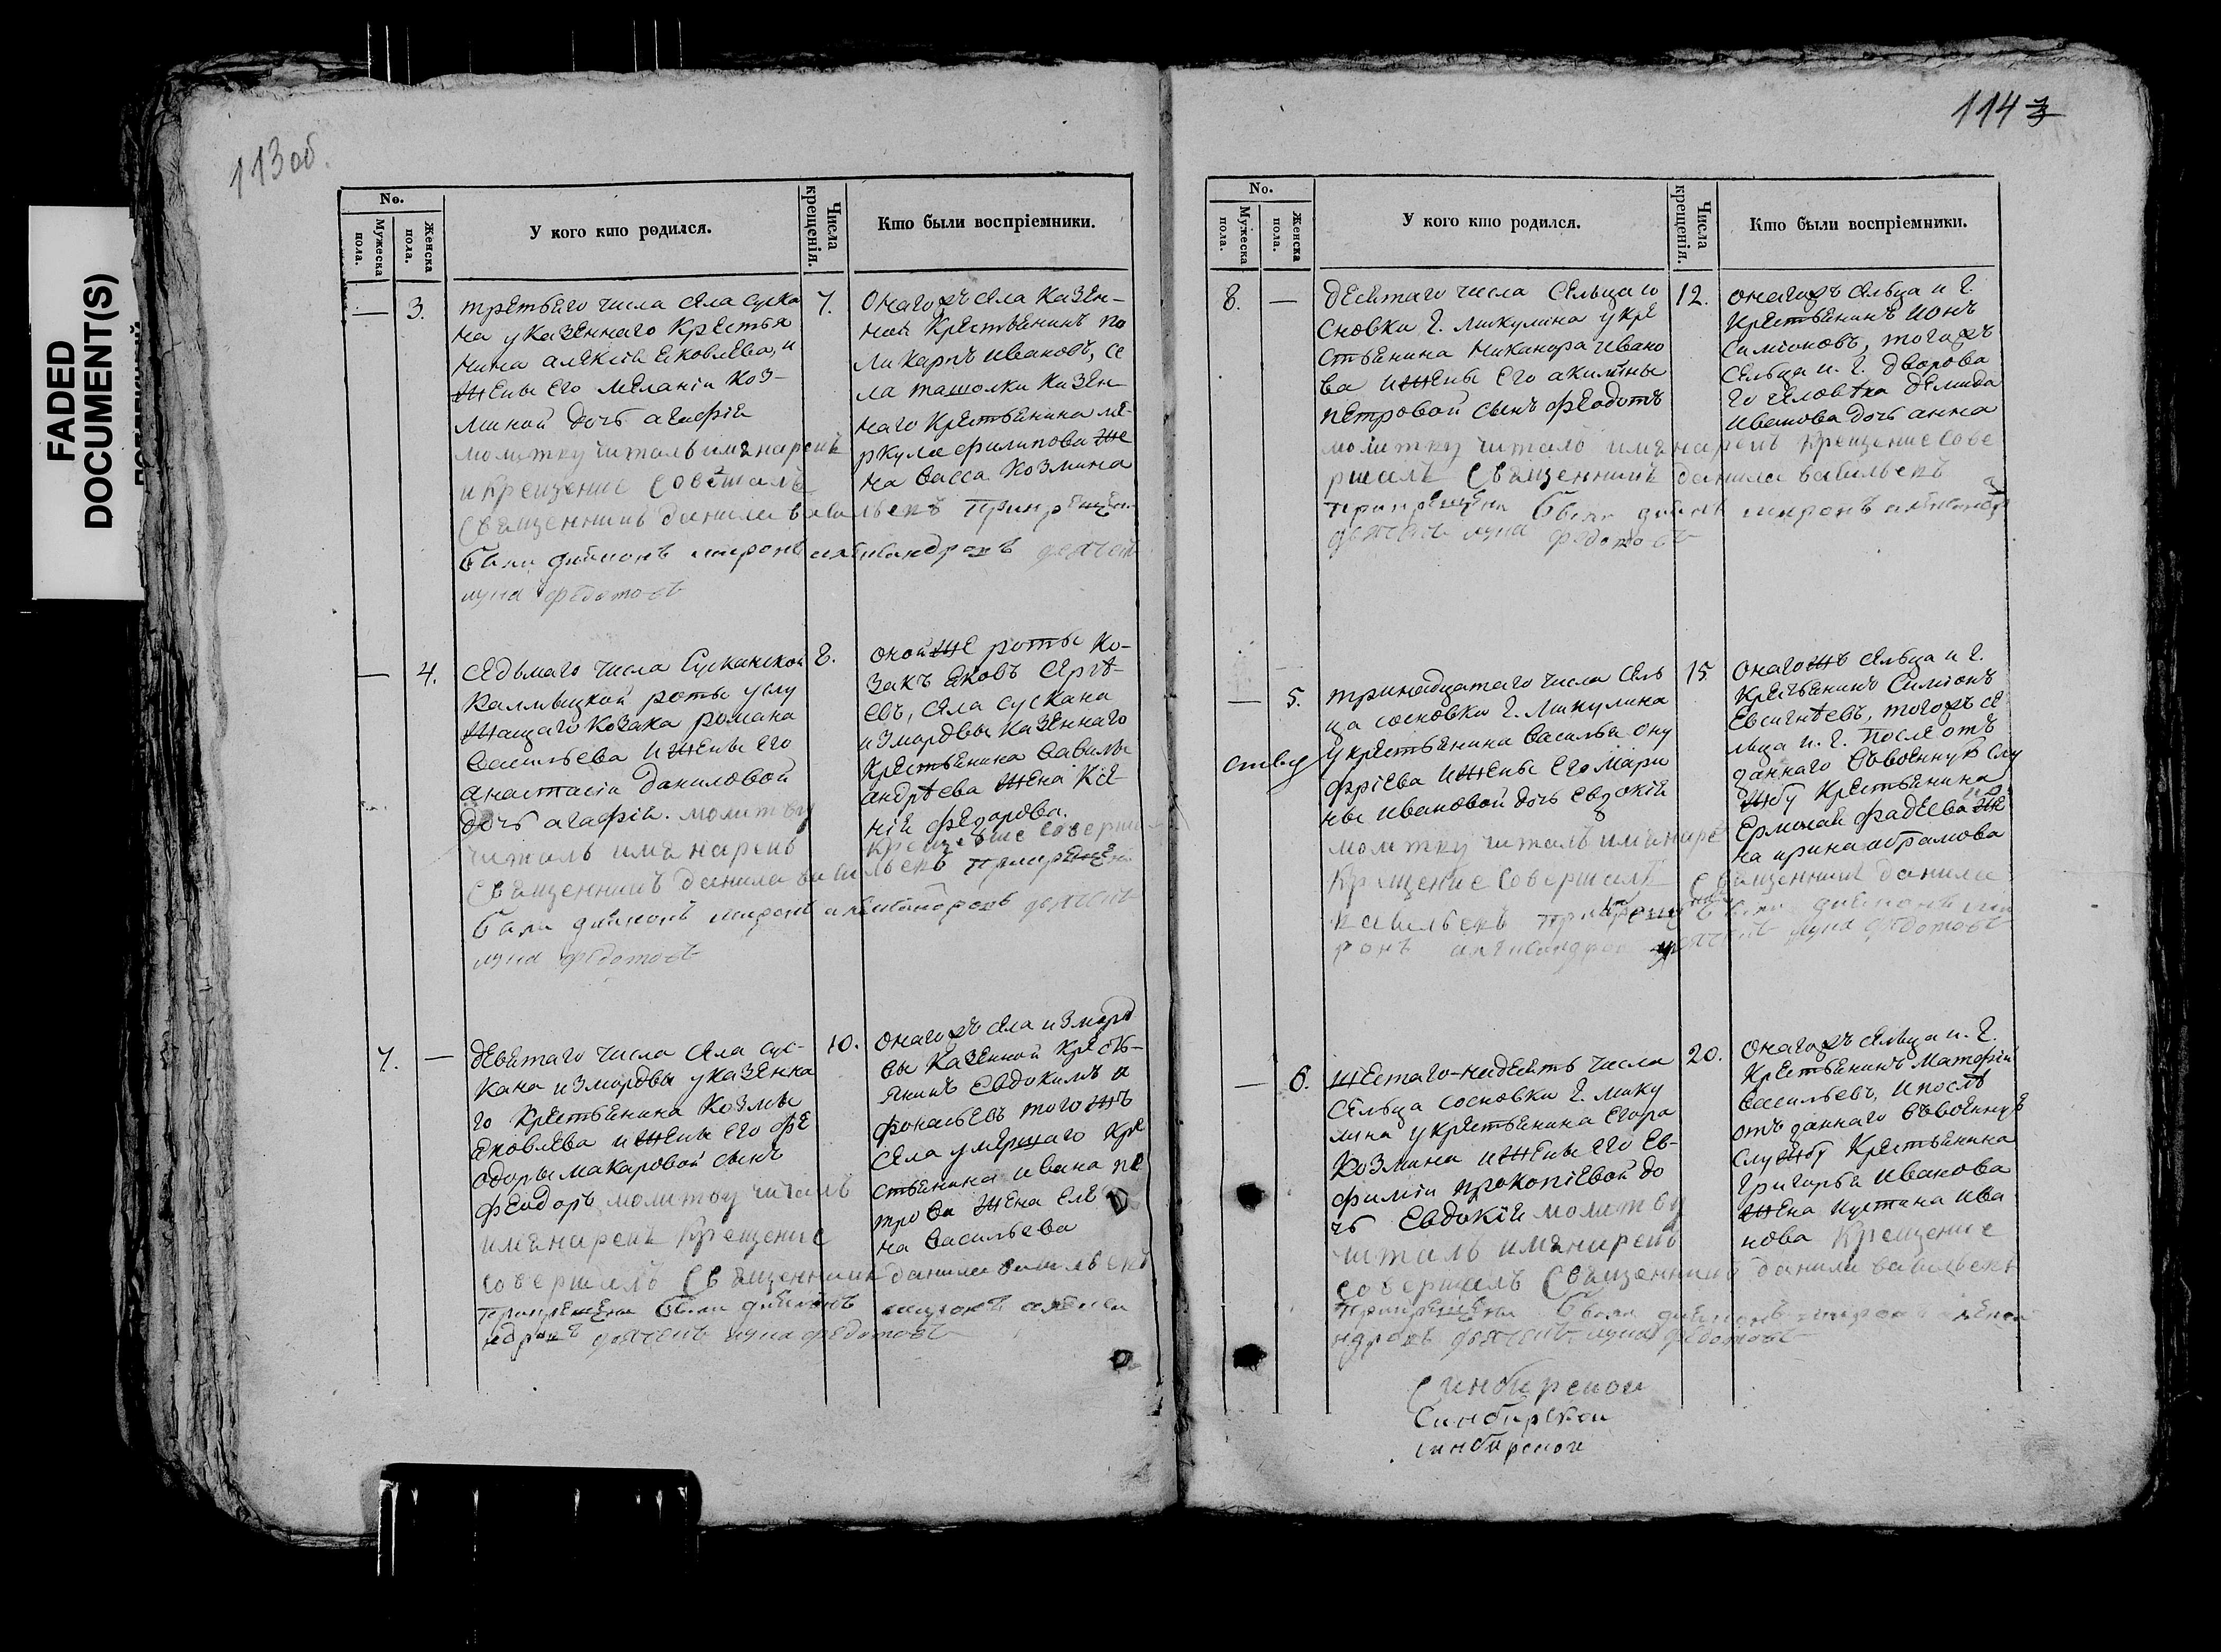 FADED
DOCUMENT(S)
113 об.
No.
Мужеска пола.
Женска пола.
У кого кто родился.
Числа крещенія.
Кто были воспріемники.
— 3.
третьего числа села суска
на у казеннаго крестья
нина алексія яковлева, и
жены его меланіи коз-
миной дочь агафія
молитву читалъ имя нарекъ
и крещение
священникъ данила васильевъ при крещен
были диаконъ миронъ александровъ дьячекъ
лука федотовъ
7.
онагожъ села казен-
ной крестьянинъ по
ликарпъ ивановъ, се
ла ташолки казен-
наго крестьянина ме-
ркула филипова же
на васса козмина
— 4.
седьмаго числа Сусканской
калмыцкой роты у слу
жащаго козака романа
васильева и жены его
анастасіи даниловой
дочь агафія. молитву
читалъ имя нарекъ
священникъ данила васильевъ при крещен
были диаконъ миронъ александровъ дьячекъ
лука федотовъ
8.
онойже роты ко-
закъ яковъ сергѣ-
евъ, села сускана
из мордвы казеннаго
крестьянина савилы
андрѣева жена ксе-
нія федорова.
крещение соверши
7. —
девятаго числа села сус-
кана из мордвы у казенна
го крестьянина козмы
яковлева и жены его фе
одоры макаровой сынъ
феодоръ молитву читалъ
имя нарекъ крещение
совершалъ священникъ данила васильевъ
при крещены были диаконъ миронъ алекса
ндровъ дьячекъ лука федотовъ
10.
онагожъ села из морд
вы казенной кресть-
янинъ евдокимъ а
фонасьевъ тогожъ
села умершаго кре
стьянина ивана пе
трова жена еле
на васильева
114
No.
Мужеска пола.
Женска пола.
У кого кто родился.
Числа крещенія.
Кто были воспріемники.
8. —
десятаго числа сельца со
сновки г. микулина у кре
стьянина никанора ивано
ва и жены его акилины
петровой сынъ феодотъ
молитву читалъ имя нарекъ крещение сове
ршалъ священникъ данила васильевъ
при крещены были диаконъ миронъ александр
дьячекъ лука федотовъ
12.
онагожъ сельца и г.
крестьянинъ ионъ
симіоновъ, тогожъ
сельца и. г. дворова
го человѣка демида
иванова дочь анна
— 5.
тринадцатаго числа сель
ца сосновки г. микулина
у крестьянина василья ону
фріева и жены его мари
ны ивановой дочь евдокія
молитву читалъ имя наре
крещение совершалъ священникъ данила
васильевъ при крещении были диаконъ ми
ронъ александров дьячекъ лука федотовъ
15.
онагожъ сельца и г.
крестьянинъ симіонъ
евсигнѣевъ, тогожъ се
льца и. г. после отъ
даннаго въ военную слу
жбу крестьянина
ермолая фадеева же
на ирина абрамова
— 6.
шестаго-надесять числа
сельца сосновки г. мику
лина у крестьянина егора
козмина и жены его ев-
фиміи прокопіевой до
чь евдокія молитву
читалъ имя нарекъ
совершалъ священникъ данила васильевъ
при крещены были диаконъ миронъ алекса
ндровъ дьячекъ лука федотовъ
20.
онагожъ сельца и. г.
крестьянинъ матфей
васильевъ, и послѣ
отъ даннаго въ военную
службу крестьянина
григорья иванова
жена иустина ива
нова крещение
синбирской
Синбирской
синбирской